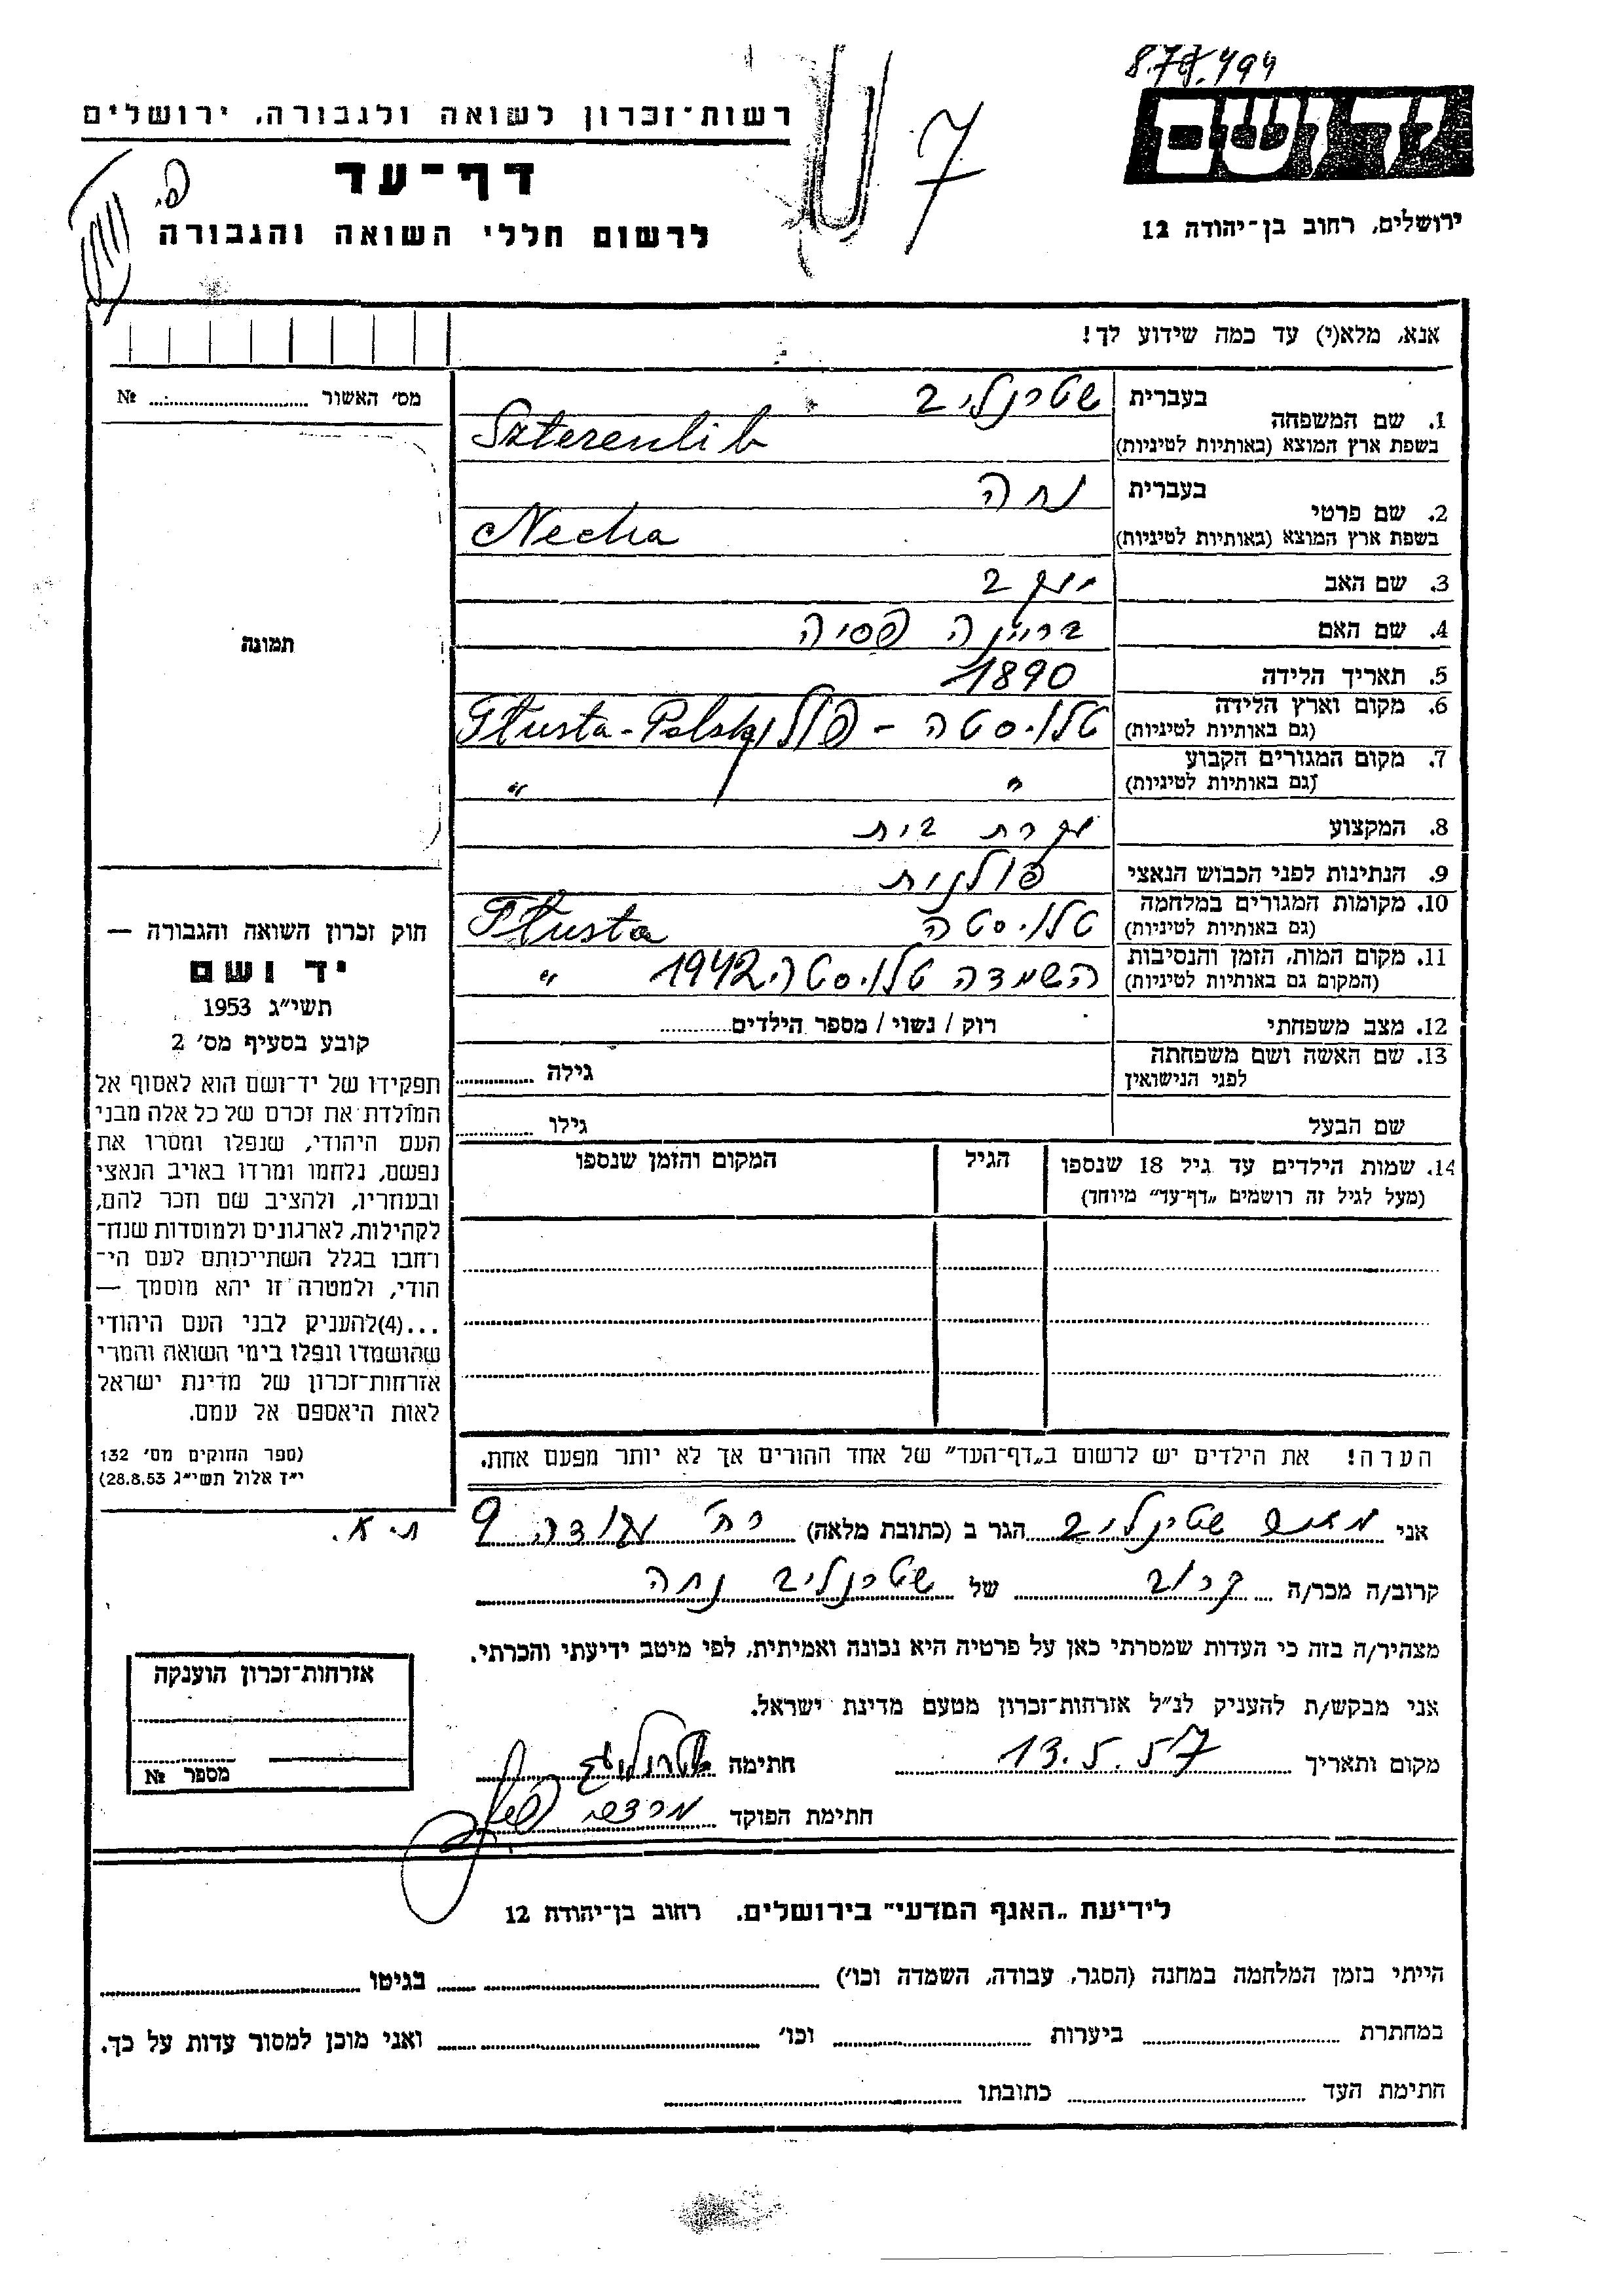 8.78.494
ידושם
ירושלים, רחוב בן־יהודה 12
7
רשות־זכרון לשואה ולגבורה, ירושלים
דף־עד
לרשום חללי השואה והגבורה
אנא, מלא(י) עד כמה שידוע לך!
1. שם המשפחה בעברית שטרנליב
בשפת ארץ המוצא (באותיות לטיניות) Szterenlib
2. שם פרטי בעברית נחה
בשפת ארץ המוצא (באותיות לטיניות) Necha
3. שם האב יעקב
4. שם האם בריינה פסיה
5. תאריך הלידה 1890
6. מקום וארץ הלידה (גם באותיות לטיניות) טלוסטה - פולין Tłusta-Polska
7. מקום המגורים הקבוע (גם באותיות לטיניות) " "
8. המקצוע עקרת בית
9. הנתינות לפני הכבוש הנאצי פולנית
10. מקומות המגורים במלחמה (גם באותיות לטיניות) טלוסטה Tłusta
11. מקום המות, הזמן והנסיבות (המקום גם באותיות לטיניות) השמדה טלוסטה 1942 "
12. מצב משפחתי רוק / נשוי / מספר הילדים
13. שם האשה ושם משפחתה לפני הנישואין גילה
שם הבעל גילו
14. שמות הילדים עד גיל 18 שנספו (מעל לגיל זה רושמים „דף־עד" מיוחד) הגיל המקום והזמן שנספו
הערה! את הילדים יש לרשום ב„דף־העד" של אחד ההורים אך לא יותר מפעם אחת.
מס׳ האשור №
תמונה
חוק זכרון השואה והגבורה —
יד ושם
תשי״ג 1953
קובע בסעיף מס׳ 2
תפקידו של יד־ושם הוא לאסוף אל
המולדת את זכרם של כל אלה מבני
העם היהודי, שנפלו ומסרו את
נפשם, נלחמו ומרדו באויב הנאצי
ובעוזריו, ולהציב שם וזכר להם,
לקהילות, לארגונים ולמוסדות שנח־
רבו בגלל השתייכותם לעם הי־
הודי, ולמטרה זו יהא מוסמך —
...(4)להעניק לבני העם היהודי
שהושמדו ונפלו בימי השואה והמרי
אזרחות־זכרון של מדינת ישראל
לאות היאספם אל עמם.
(ספר החוקים מס׳ 132
י״ד אלול תשי״ג 28.8.53)
אני שטרנליב הגר ב (כתובת מלאה) רח׳ 9 ת.א.
קרוב/ה מכר/ה קרוב של שטרנליב נחה
מצהיר/ה בזה כי העדות שמסרתי כאן על פרטיה היא נכונה ואמיתית, לפי מיטב ידיעתי והכרתי.
אני מבקש/ת להעניק לנ״ל אזרחות־זכרון מטעם מדינת ישראל.
מקום ותאריך 13.5.57 חתימה שטרנליב
חתימת הפוקד מרדכי
אזרחות־זכרון הוענקה
מספר №
לידיעת „האגף המדעי" בירושלים. רחוב בן־יהודה 12
הייתי בזמן המלחמה במחנה (הסגר, עבודה, השמדה וכו׳) בגיטו
במחתרת ביערות וכו׳ ואני מוכן למסור עדות על כך.
חתימת העד כתובתו